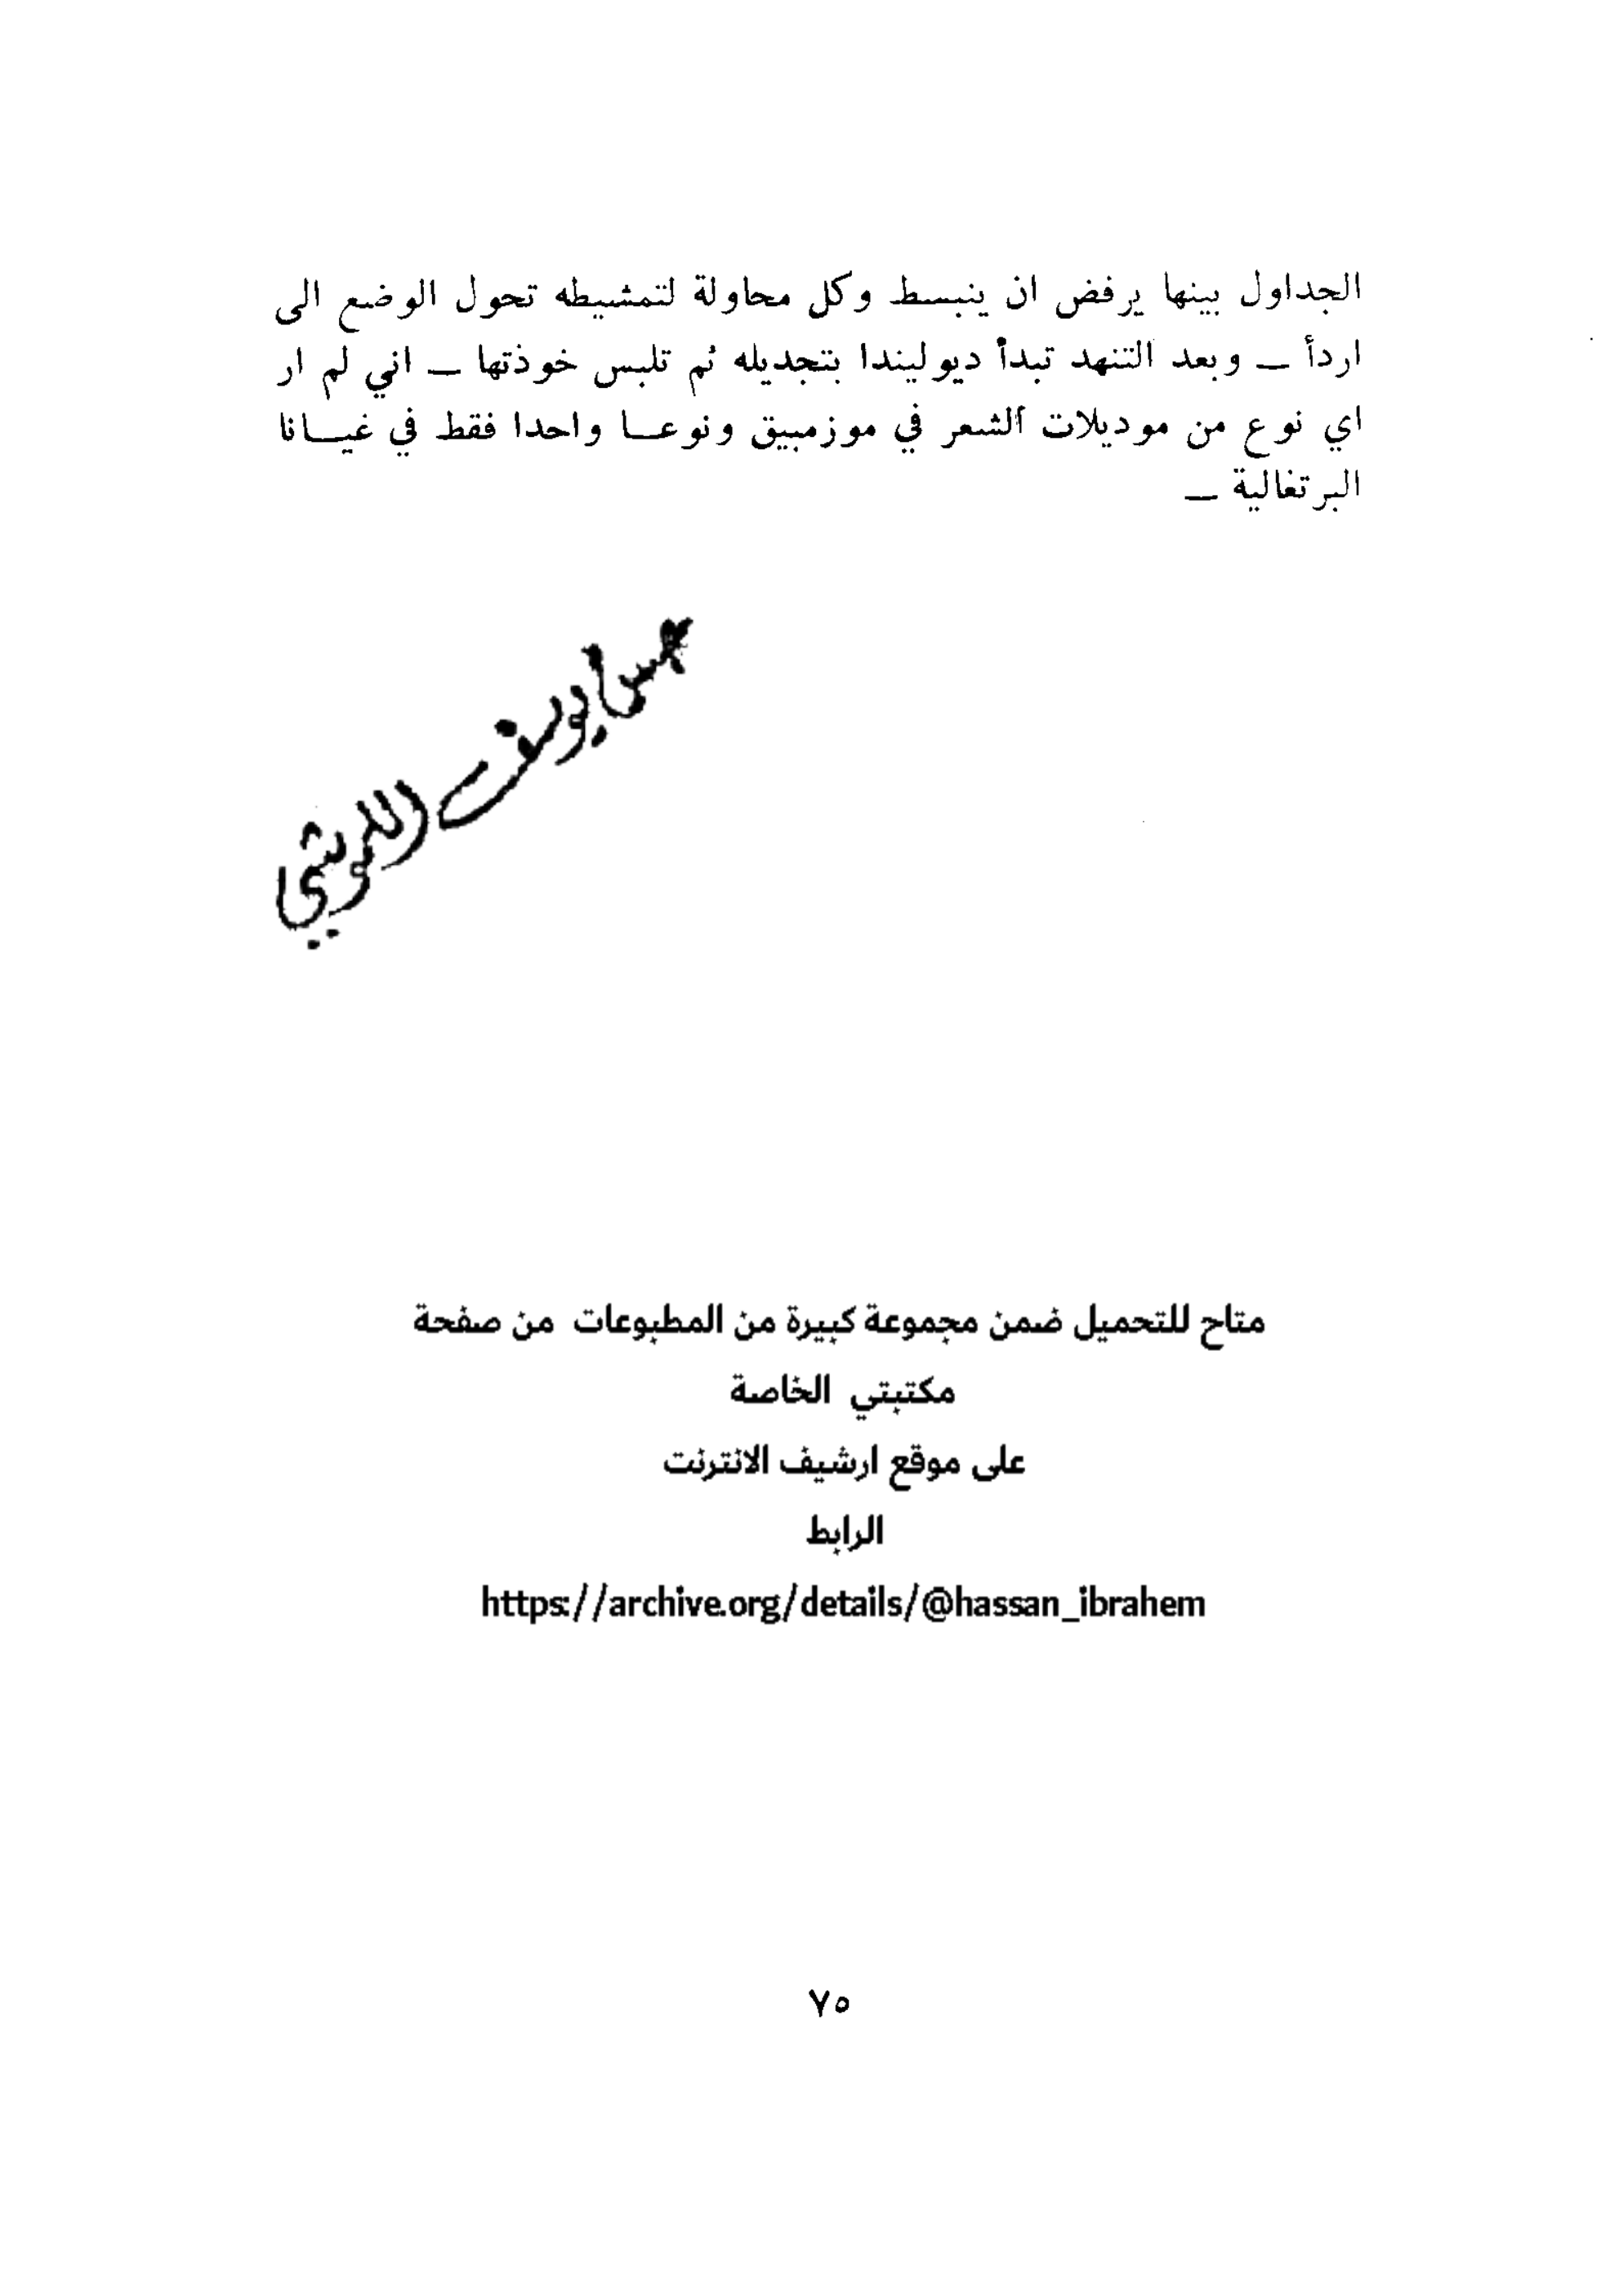 الجداول بينها يرفض ان ينبسط وكل محاولة لتمشيطه تحول الوضع الى
اردأ — وبعد التنهد تبدأ ديوليندا بتجديله ثم تلبس خوذتها — اني لم ار
اي نوع من موديلات الشعر في موزمبيق ونوعـا واحدا فقط في غيـانا
البرتغالية —
يوسف
متاح للتحميل ضمن مجموعة كبيرة من المطبوعات من صفحة
مكتبتي الخاصة
على موقع ارشيف الانترنت
الرابط
https://archive.org/details/@hassan_ibrahem
٧٥